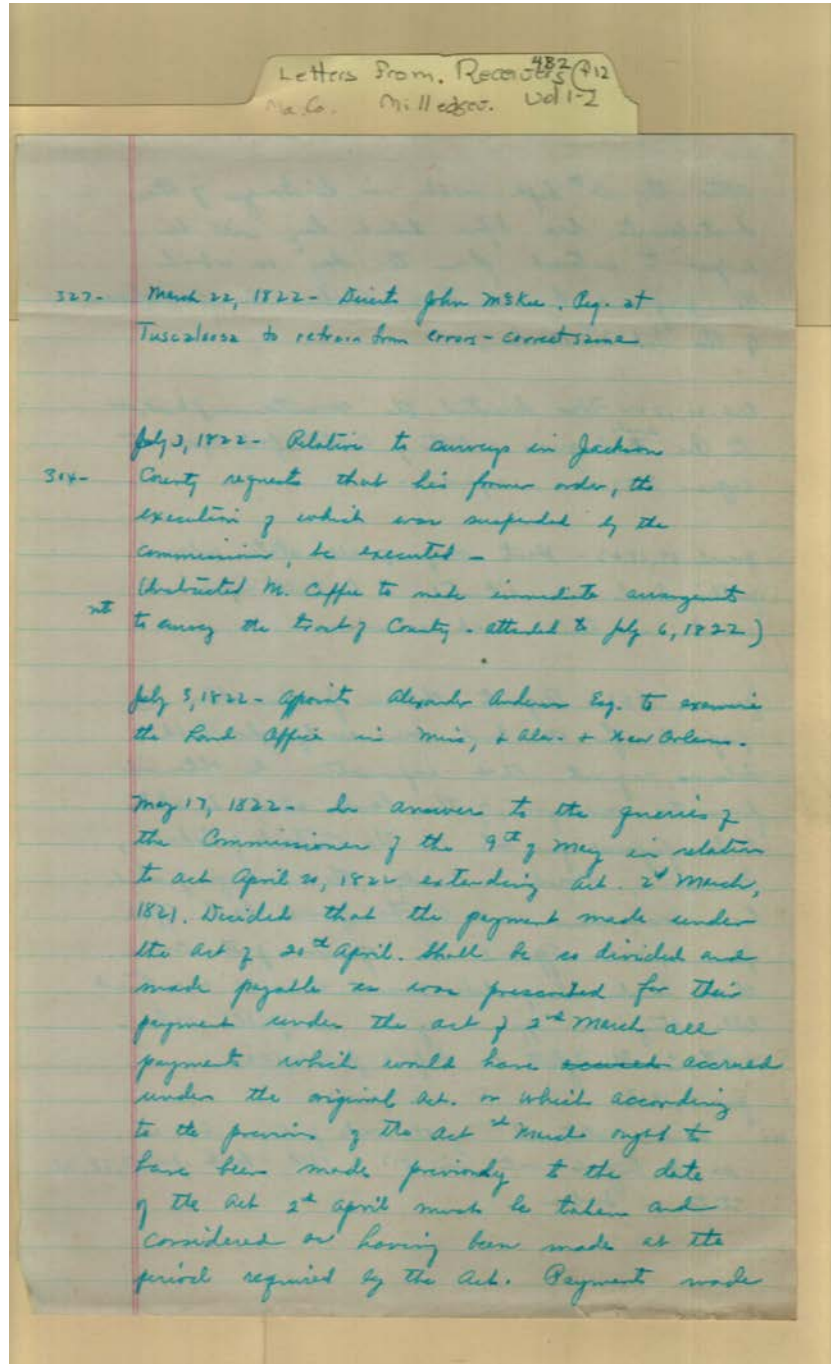 Letters from. Receivers 482 P12
Ma. Co. Milledgev. Vol 1-2
327- March 22, 1822- Directs John McKee. Reg. at
Tuscaloosa to refrain from errors - correct same.
July 3, 1822- Relative to surveys in Jackson
304- County requests that his former order, the
execution of which was suspended by the
commissioner, be executed -
(Instructed M. Coffee to make immediate arrangent
to survey the tract of County - attended to July 6, 1822)
July 5, 1822- Appoints Alexander Anderson Esq. to examine
the Land Office in Miss, & Ala. & New Orleans.
May 17, 1822- In answer to the queries of
the Commissioner of the 9th of May in relation
to act April 20, 1822 extending act. 2d March,
1821. Decided that the payment made under
the act of 20th April. Shall be so divided and
made payable as was prescribed for their
payment under the act of 2nd March all
payments which would have accrued
under the original act. or which according
to the provisions of the act 2d March ought to
have been made previously to the date
of the act 2d April must be taken and
considered as having been made at the
period required by the Act. Payments made